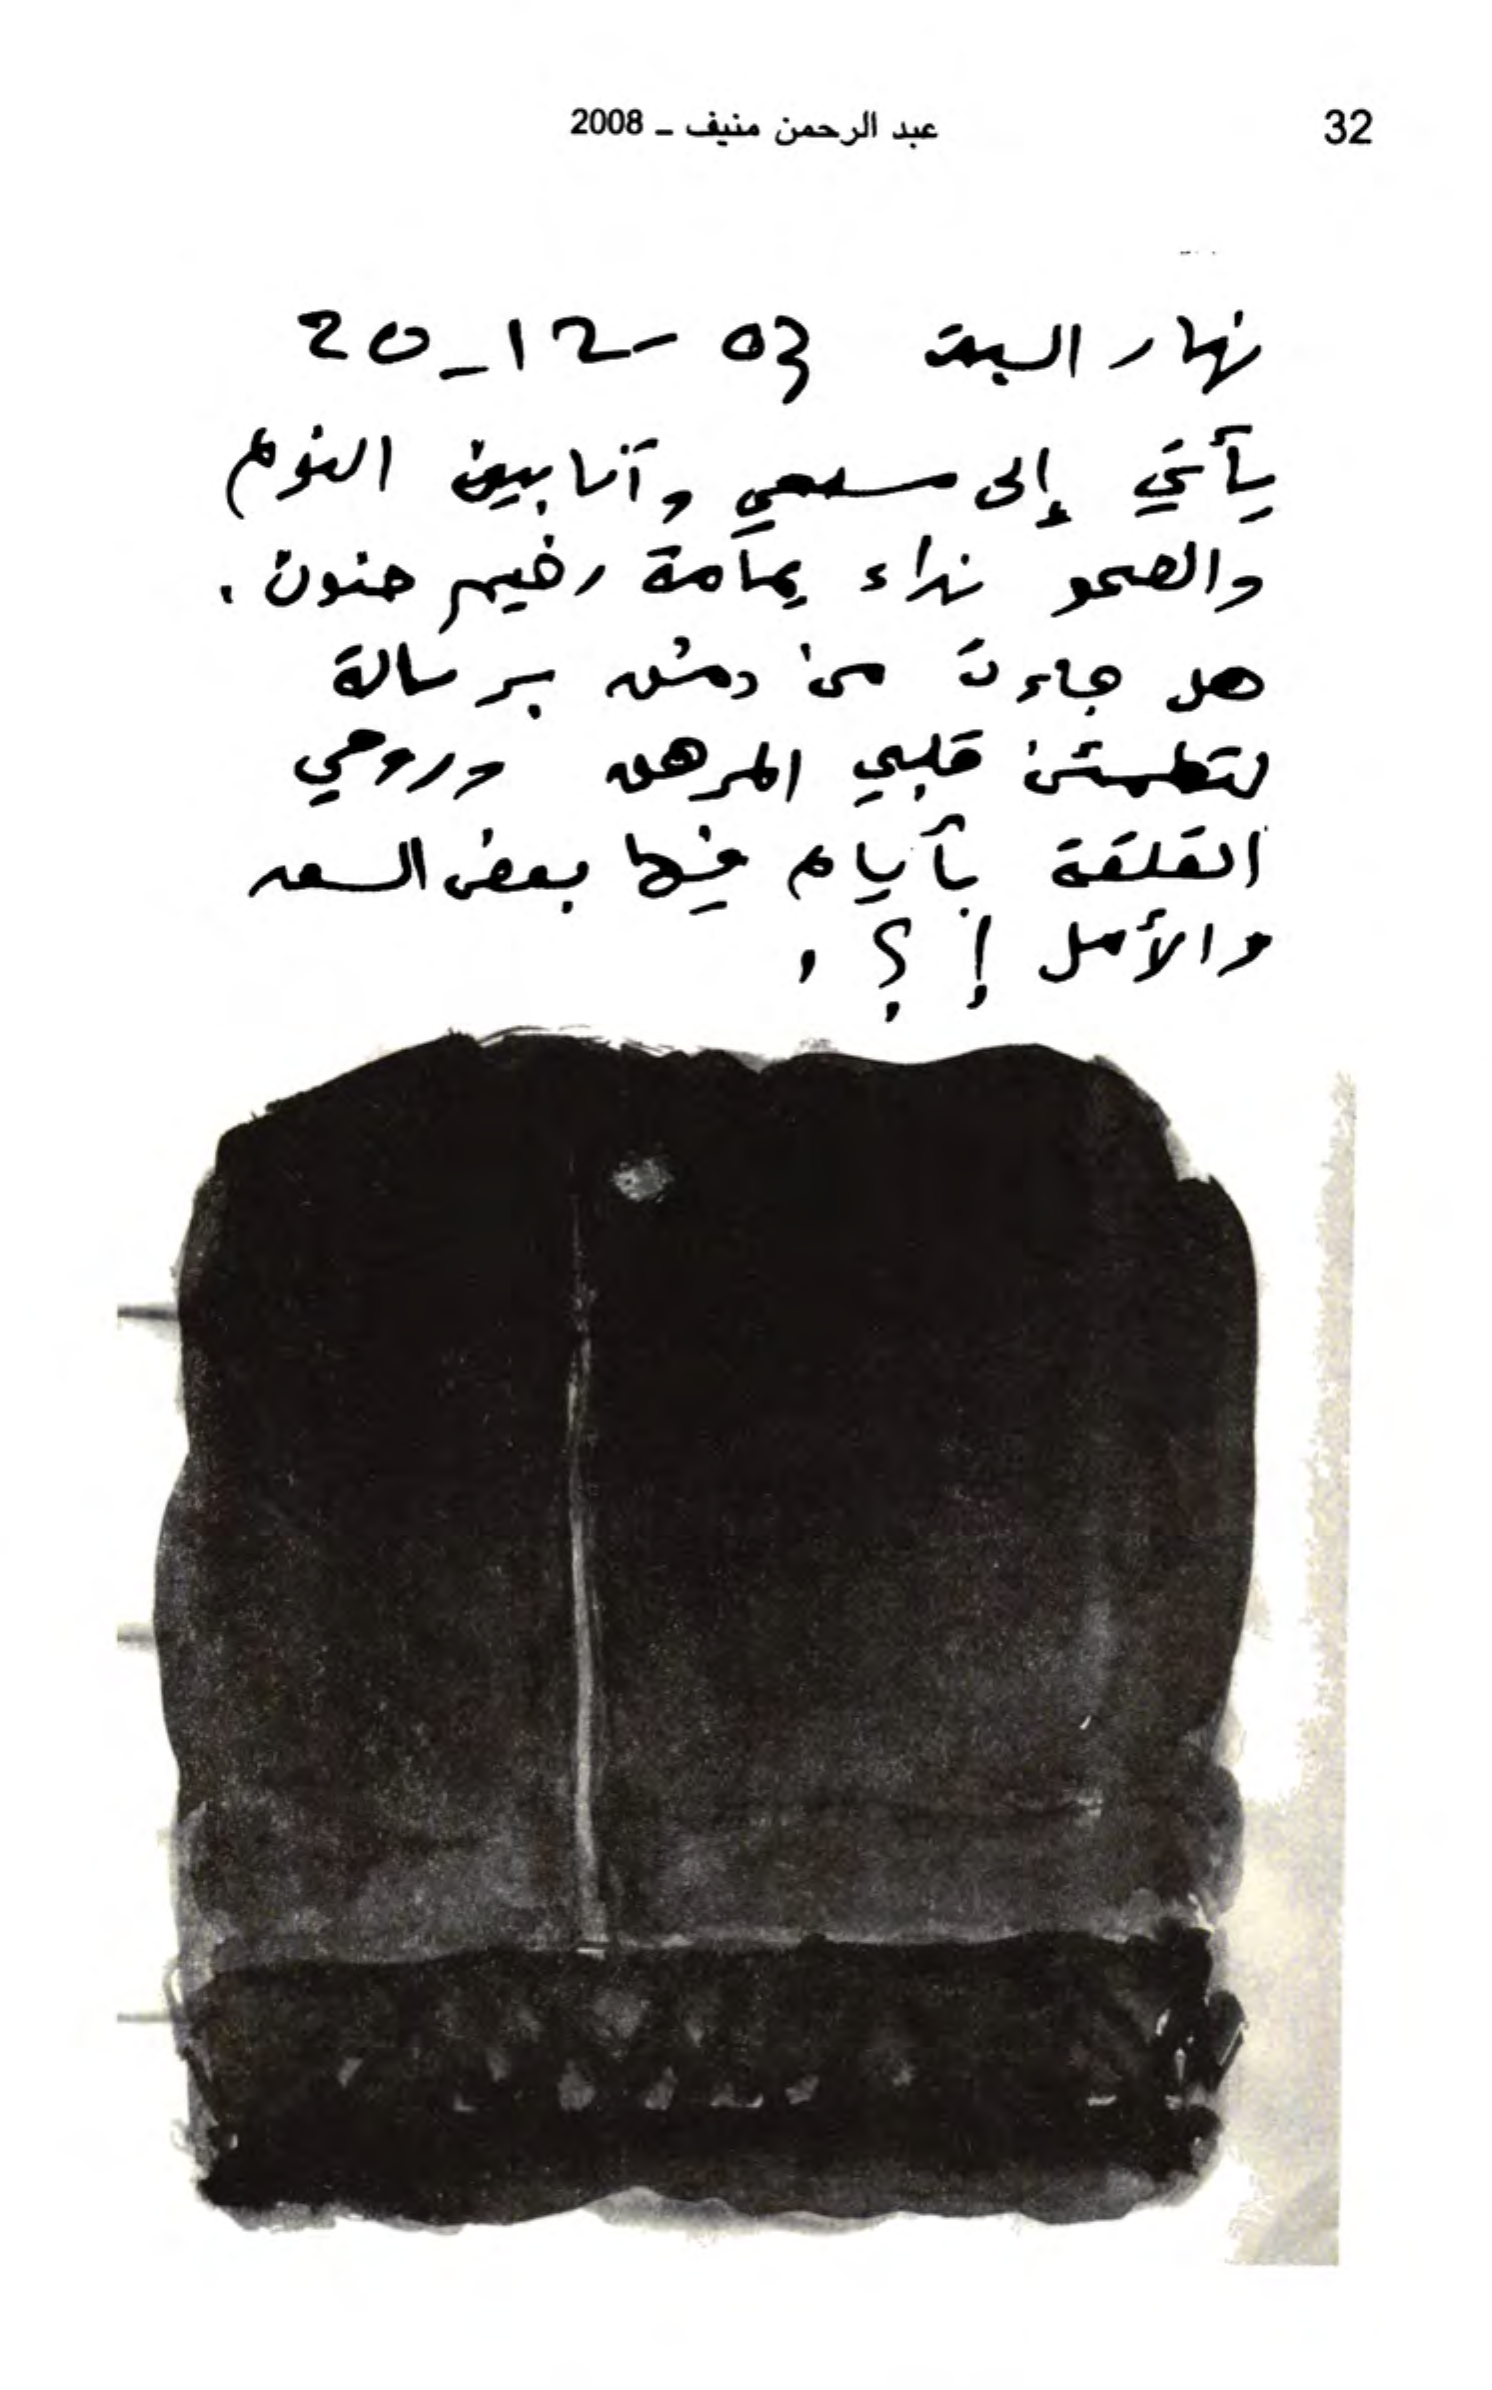 32
عبد الرحمن منيف ـ 2008
نهار السبت 20-12-03
يأتي إلى مسمعي وأنا بين النوم
والصحو نداء يمامة رخيم حنون .
هل جاءت من دمشق برسالة
لتطمئن قلبي المرهق وروحي
القلقة بأيام فيها بعض السعد
والأمل ! ؟ .